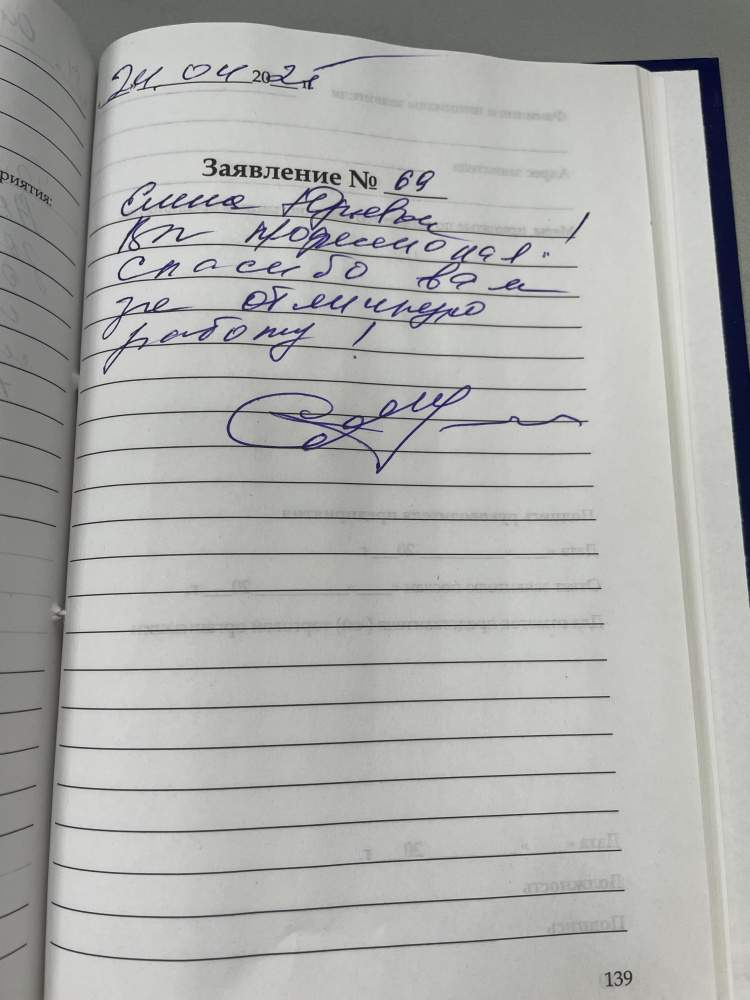 24. 04 202 г.
Заявление № 69
Елена Юрьевна!
Вы професионал.
спасибо вам
за отличную
работу!
риятия:
139